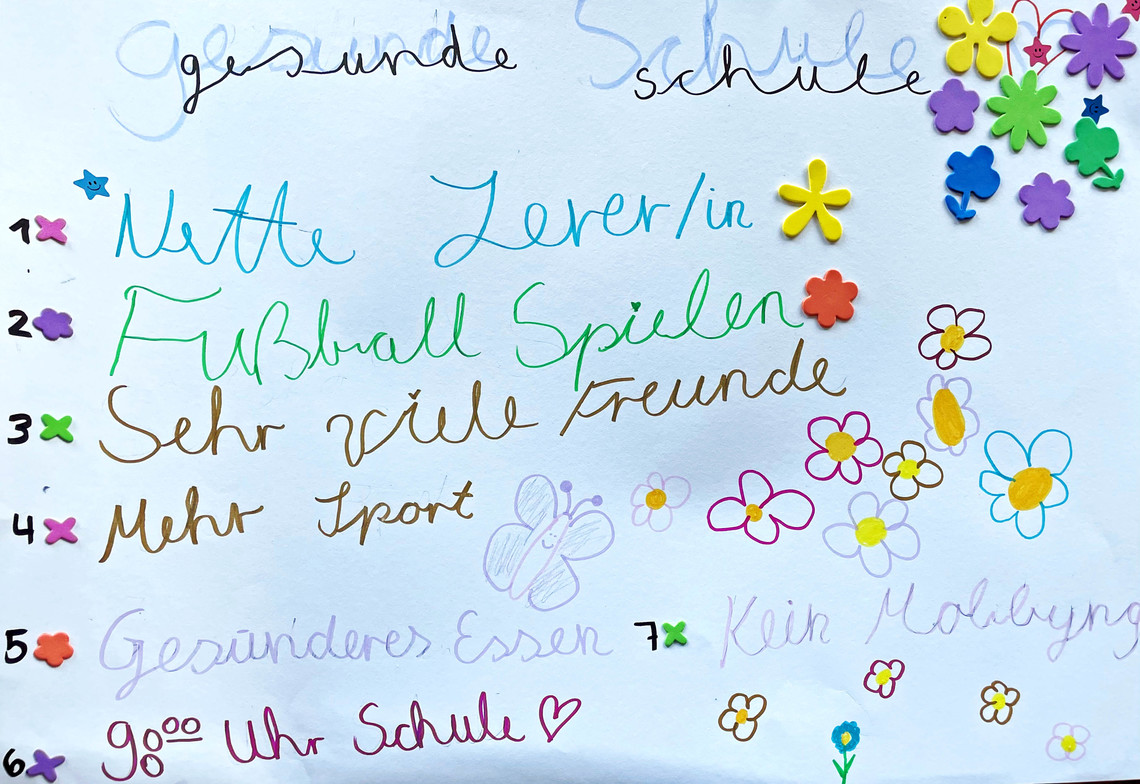 gesunde schule
1 Nette Lerer/in
2 Fußball Spielen
3 Sehr viele Freunde
4 Mehr Sport
5 Gesünderes Essen
7 Kein Mobbyng
6 9:00 Uhr Schule